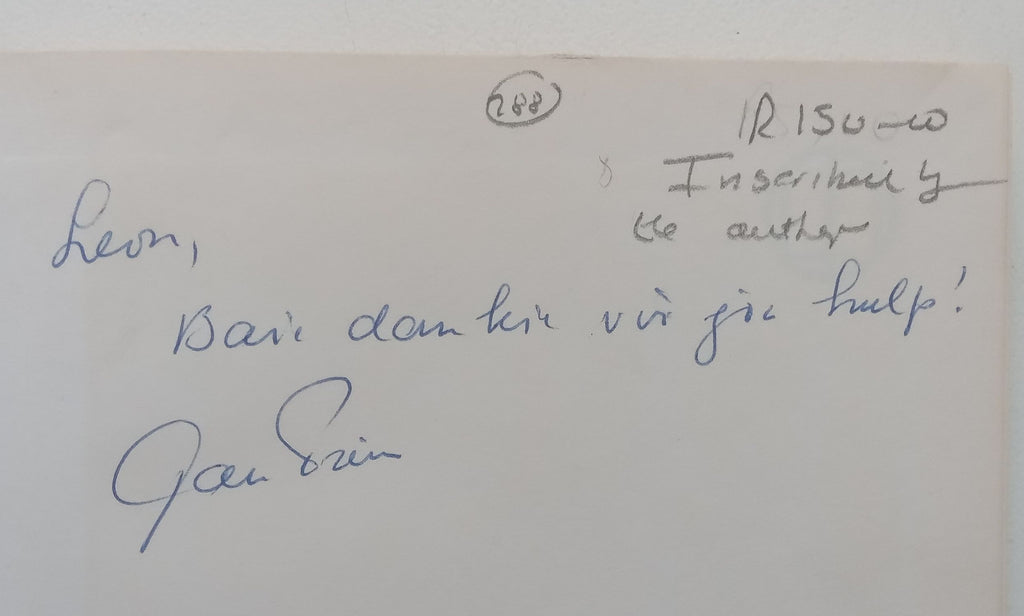 288
R150-00
Inscribed by
the author
Leon,
Baie dankie vir jou hulp!
Jan